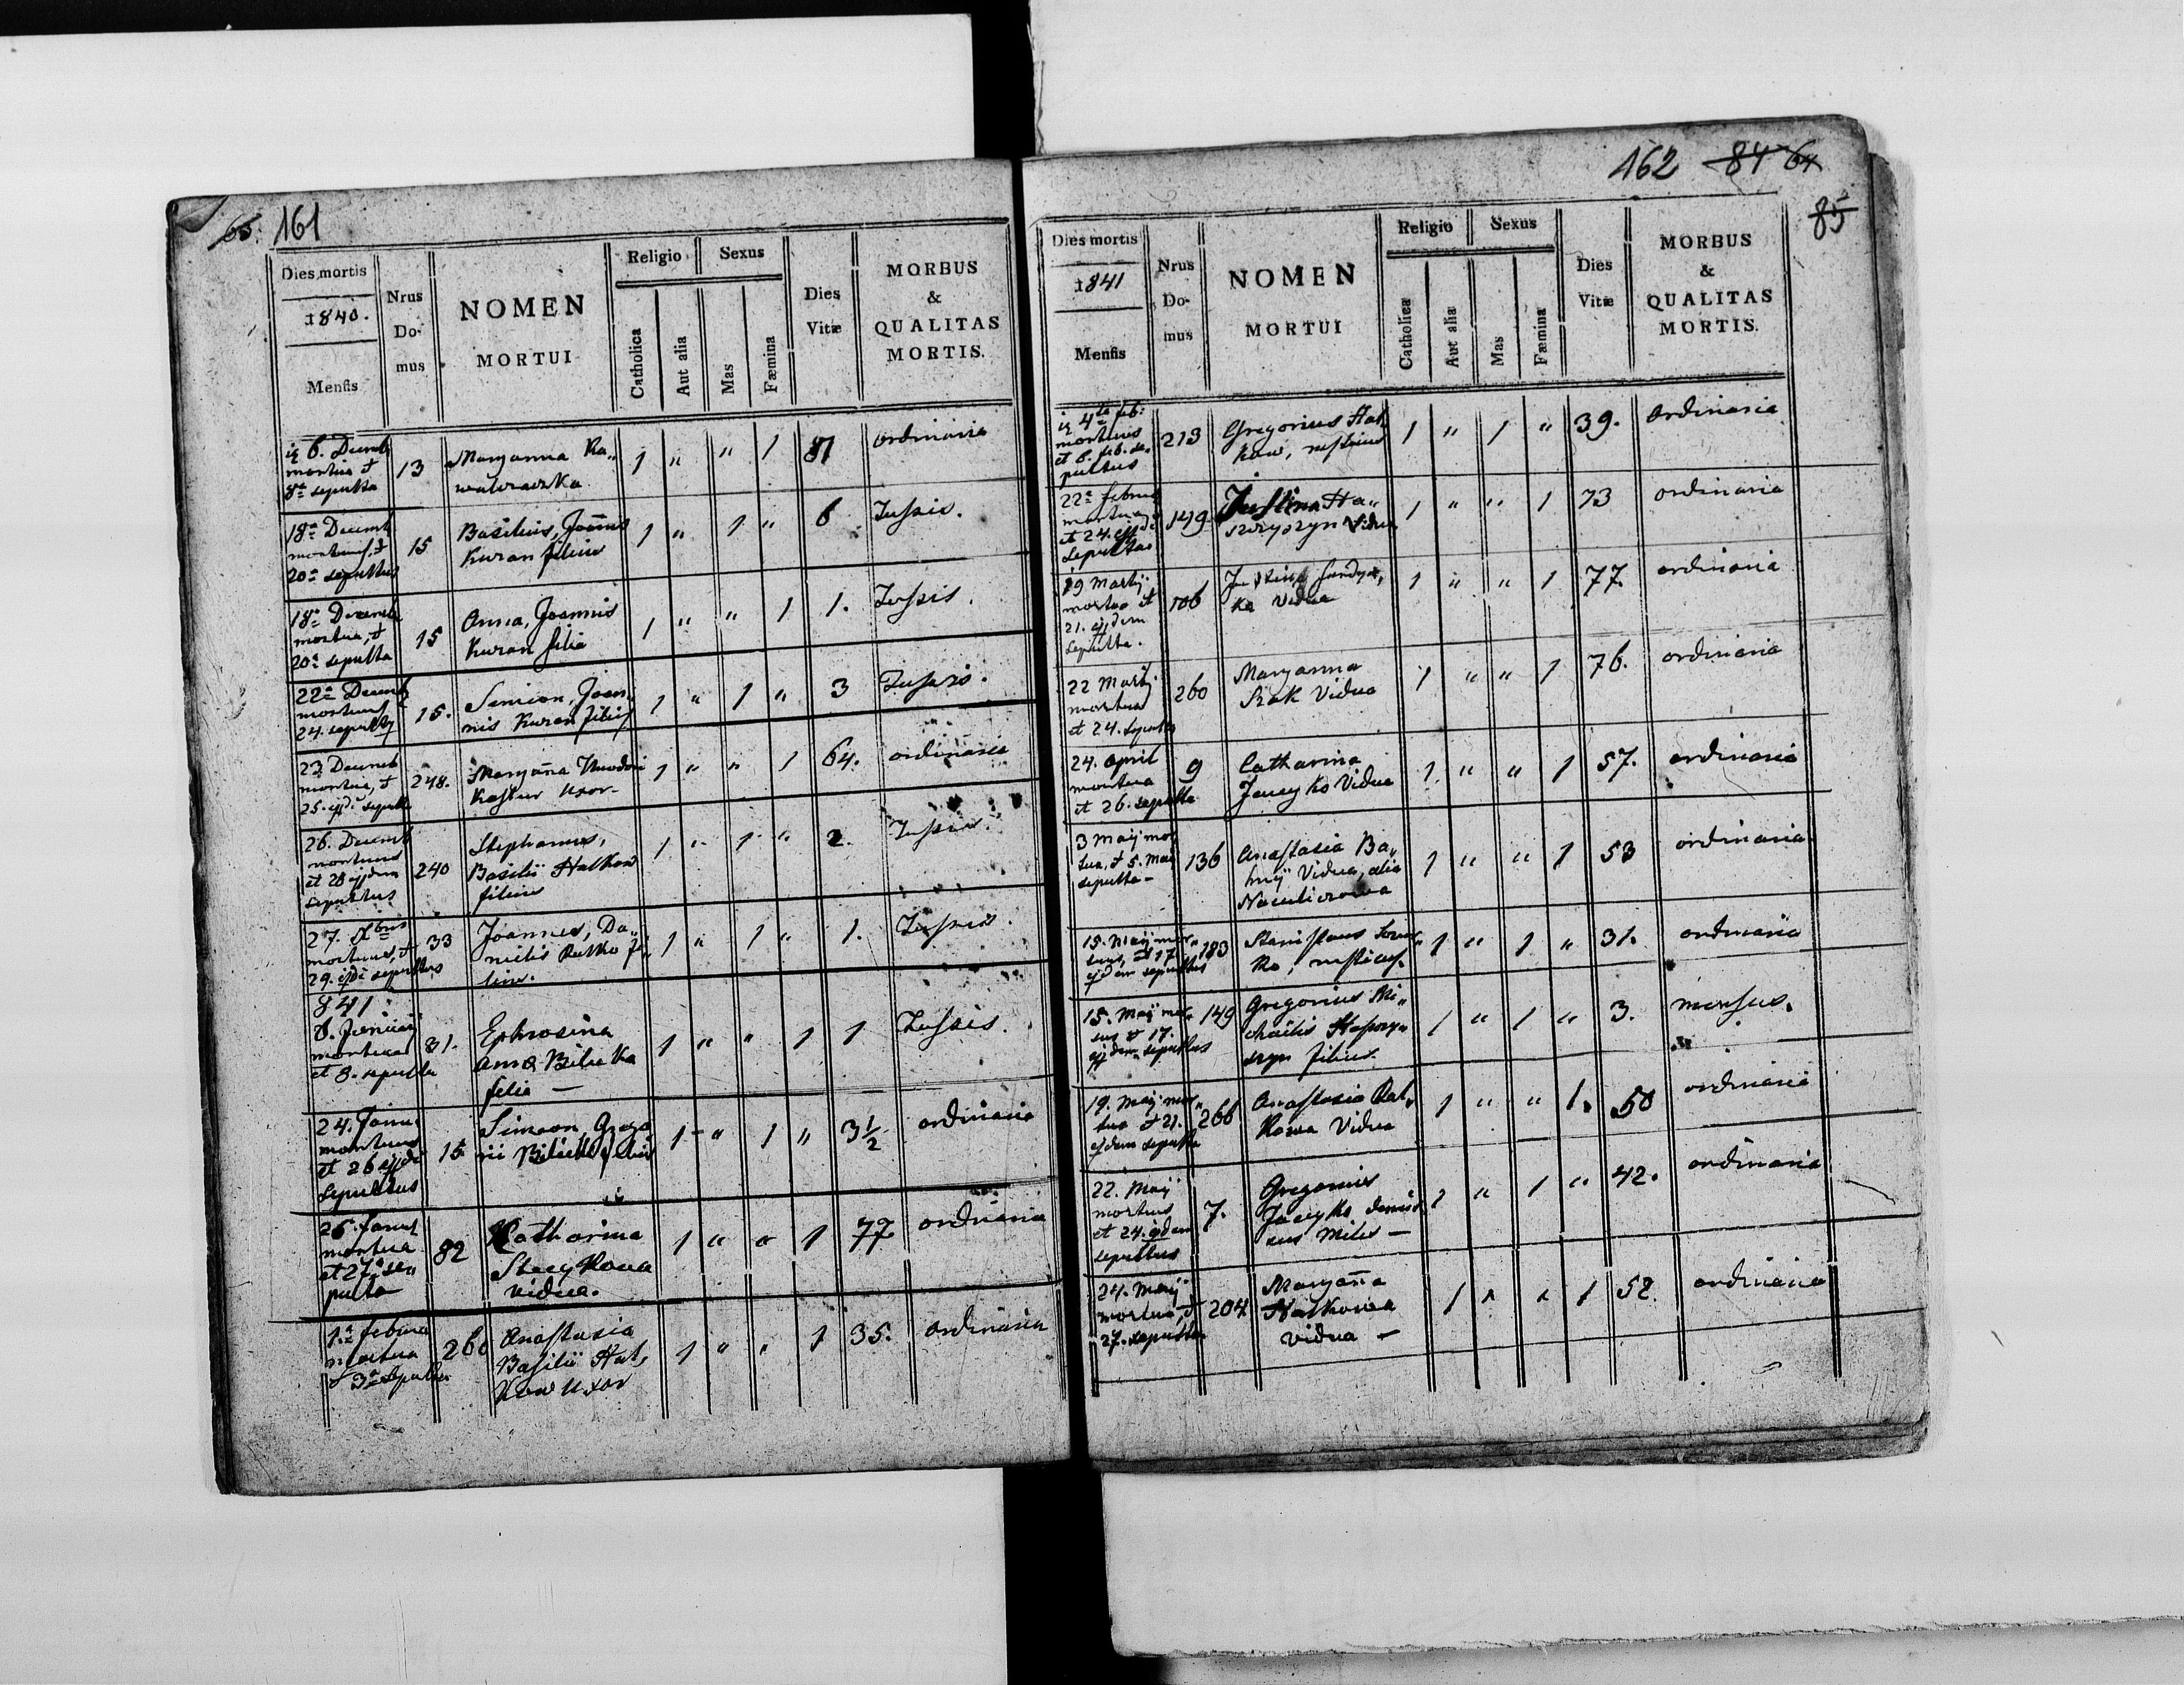 65. 161
Dies mortis
1840.
Mensis
Nrus
Do-
mus
NOMEN
MORTUI
Religio
Catholica
Aut alia
Sexus
Mas
Fæmina
Dies
Vitæ
MORBUS
&
QUALITAS
MORTIS.
6. Decemb
mortua et
8a sepulta
13
Maryanna Ka„
walewska
1 " " 1 81 ordinaria
18a Decemb
mortuus, et
20a sepultus
15
Basilius, Joannis
Kuran filius
1 " 1 " 6 Tussis.
18a Decemb
mortua, et
20a sepulta
15
Anna, Joannis
Kuran filia
1 " " 1 1. Tussis.
22a Decemb
mortuus
24. sepultus
15.
Simion, Joan„
nis Kuran filius
1 " 1 " 3 Tussis.
23 Decemb
mortua, et
25. ejdi sepulta
248.
Maryanna Theodori
Kostur uxor
1 " " 1 64. ordinaria
26. Decemb
mortuus
et 28 ejdem
sepultus
240
Stephanus,
Basilii Hatkow
filius
1 " 1 " 2. Tussis.
27. Xbris
mortuus, et
29. ejdi sepultus
33
Joannes, Da„
nielis Rutko fi„
lius.
1 " 1 " 1. Tussis.
841
6. Januarij
mortua
et 8. sepulta
31.
Ephrosina
Anna Bilecka
filia —
1 " " 1 1 Tussis.
24. Janu
mortuus
et 26 ejdi
sepultus
15
Simeon, Grego
rii Bilecki filius
1 " 1 " 3 1/2 ordinaria
26. Janu
mortua
et 27. se„
pulta
82
Katharina
Stecykowa
vidua.
1 " " 1 77 ordinaria
1.a februa
mortua
3a sepulta
266
Anastasia
Basilii Hat„
kow uxor
1 " " 1 35. ordinaria
162 84 64
85
Dies mortis
1841
Mensis
Nrus
Do-
mus
NOMEN
MORTUI
Religio
Catholica
Aut alia
Sexus
Mas
Fæmina
Dies
Vitæ
MORBUS
&
QUALITAS
MORTIS.
4ta feb:
mortuus
et 6. feb. se„
pultus
213
Gregorius Hat„
kow, rusticus
1 " 1 " 39. Ordinaria
22a februa
mortua
et 24. ejdi
sepulta
149
Justina Ha„
szczyszyn Vidua
1 " " 1 73 ordinaria
19 Martij
mortua et
21. ejdem
sepulta.
106
Justina
ka Vidua
1 " " 1 77. ordinaria
22 Martij
mortua
et 24. sepulta
260
Maryanna
Szak Vidua
1 " " 1 76. ordinaria
24. April
mortua
et 26. sepulta
9
Catharina
Jacyko Vidua
1. " " 1 57. ordinaria
3 Maij mor
tua, et 5. Maij
sepulta —
136
Anastasia Ba„
Vidua, alia
1 " " 1 53 ordinaria
15. Maij mor„
tuus, et 17
ejdem sepultus
183
Stanislaus
ko, rusticus.
1 " 1 " 31. ordinaria
15. Maij mor„
tuus et 17.
ejdem sepultus
149
Gregorius Mi„
chaelis
filius.
1 " 1 " 3. morsus.
19. Maij mor„
tua et 21.
ejdem sepulta
266
Anastasia Hat„
kowa Vidua
1 " " 1. 50 ordinaria
22. Maij
mortuus
et 24. ejdem
sepultus
7.
Gregorius
Jacyko dimis
sus Miles —
1 " 1 " 42. ordinaria
24. Maij
mortua, et
27. sepulta
204
Maryanna
Hatkowa
vidua —
1 " " 1 52. ordinaria